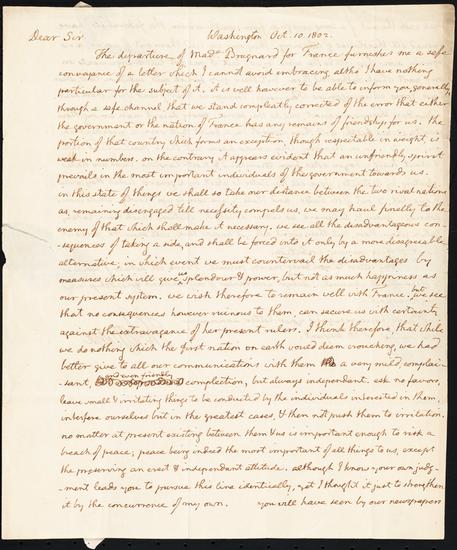 Dear Sir Washington Oct. 10. 1802.
The departure of Made. Brugnard for France furnishes me a safe
conveyance of a letter which I cannot avoid embracing, altho' I have nothing
particular for the subject of it. it is well however to be able to inform you, generally,
through a safe channel, that we stand compleatly corrected of the error that either
the government or the nation of France has any remains of friendship for us. the
portion of that country which forms an exception, though respectable in weight, is
weak in numbers. on the contrary it appears evident that an unfriendly spirit
prevails in the most important individuals of the government towards us.
in this state of things we shall so take our distance between the two rival nations
as, remaining disengaged till necessity compels us, we may haul finally to the
enemy of that which shall make it necessary. we see all the disadvantageous con-
-sequences of taking a side, and shall be forced into it only by a more disagreeable
alternative, in which event we must countervail the disadvantages by
measures which will give us splendour & power, but not as much happiness as
our present system. we wish therefore to remain well with France. but we see
that no consequences however ruinous to them, can secure us with certainty
against the extravagance of her present rulers. I think therefore, that while
we do nothing which the first nation on earth would deem crouching, we had
better give to all our communications with them a very mild, complai-
-sant, and even friendly complection, but always independent. ask no favors,
leave small & irritating things to be conducted by the individuals interested in them,
interfere ourselves but in the greatest cases, & then not push them to irritation.
no matter at present existing between them & us is important enough to risk a
breach of peace; peace being indeed the most important of all things to us, except
the preserving an erect & independant attitude. although I know your own judg-
-ment leads you to pursue this line identically, yet I thought it just to strengthen
it by the concurrence of my own. you will have seen by our newspapers